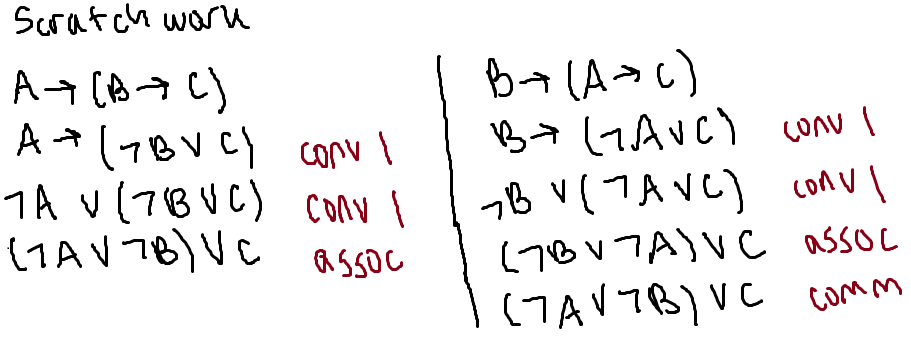 Scratch work
A → (B → C)
A → (¬B ∨ C) conv 1
¬A ∨ (¬B ∨ C) conv 1
(¬A ∨ ¬B) ∨ C assoc
B → (A → C)
B → (¬A ∨ C) conv 1
¬B ∨ (¬A ∨ C) conv 1
(¬B ∨ ¬A) ∨ C assoc
(¬A ∨ ¬B) ∨ C comm